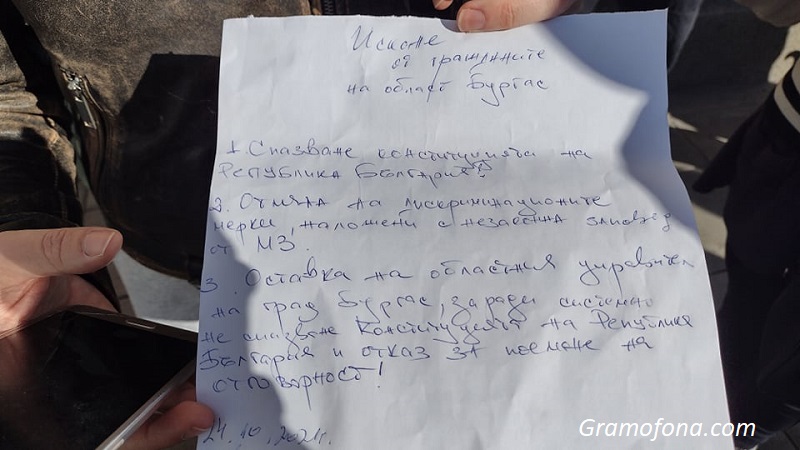 Искане
от гражданите
на област Бургас
1. Спазване конституцията на
Република България!
2. Отмяна на дискриминационите
мерки, наложени с незаконна заповед
от МЗ.
3. Оставка на областния управител
на град Бургас, заради системно
не спазване Конституцият на Република
България и отказ за поемане на
отговорност!
21.10.2021г.
Gramofona.com